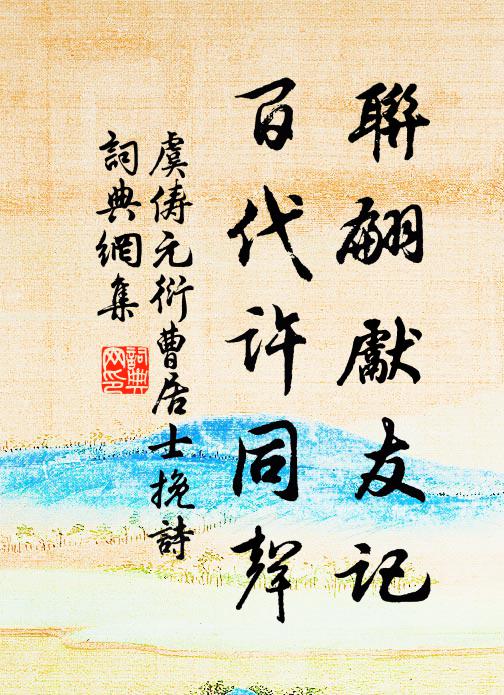 聯翩獻友記
百代許同聲
虞儔元衍曹居士挽詩
詞典網集
詞典网印